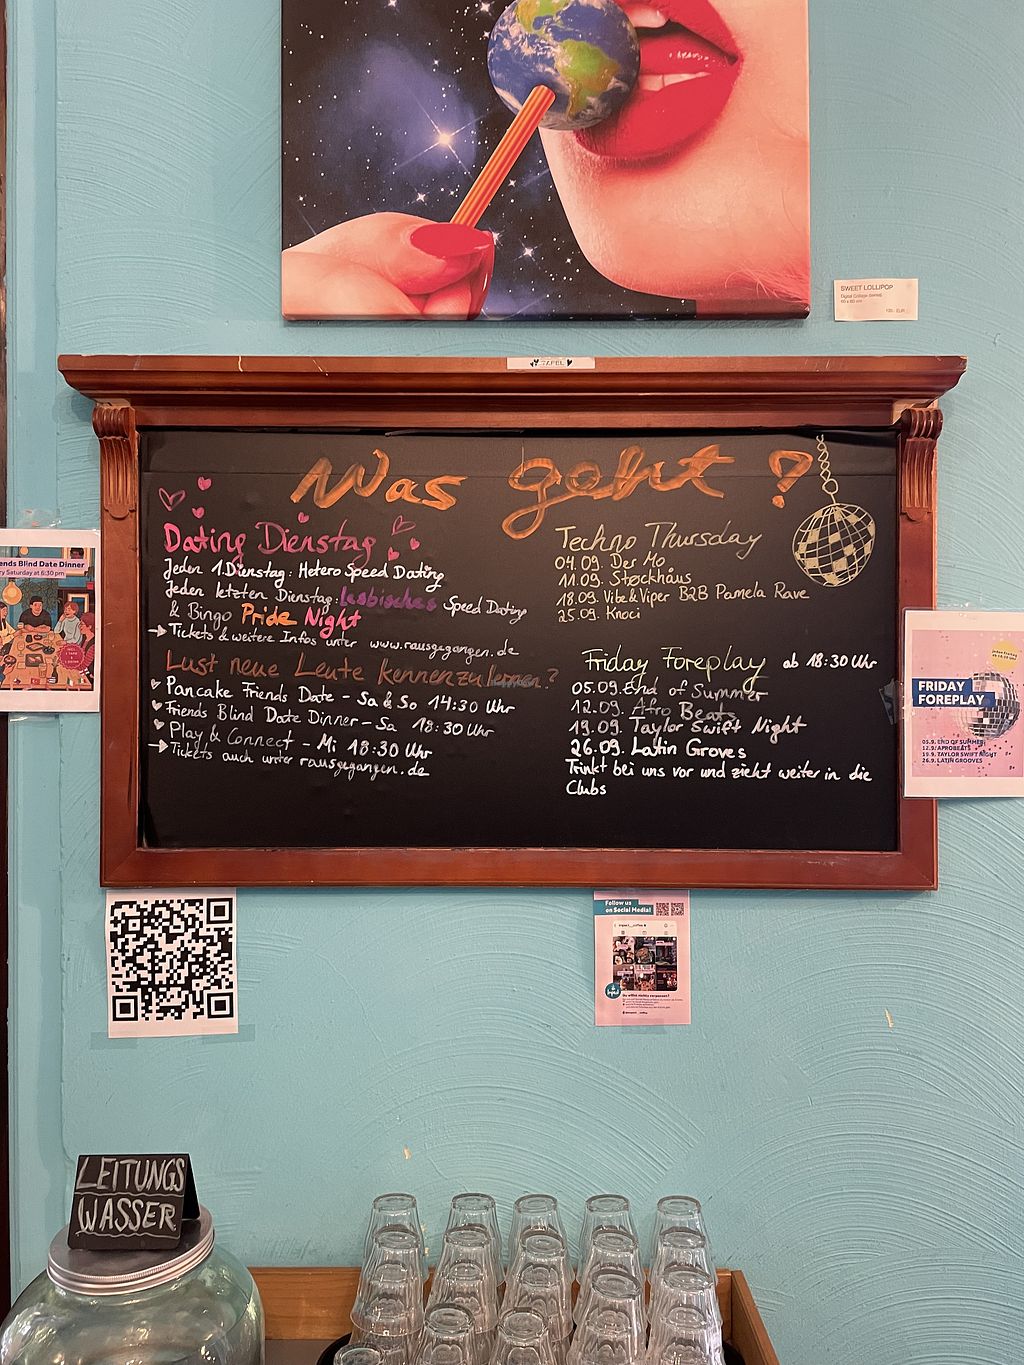 SWEET LOLLIPOP
TAFEL
Was geht?
Dating Dienstag
Jeden 1. Dienstag: Hetero Speed Dating
Jeden letzten Dienstag: lesbisches Speed Dating
& Bingo Pride Night
→ Tickets & weitere Infos unter www.rausgegangen.de
Lust neue Leute kennenzulernen?
Pancake Friends Date - Sa & So 14:30 Uhr
Friends Blind Date Dinner - Sa 18:30 Uhr
Play & Connect - Mi 18:30 Uhr
→ Tickets auch unter rausgegangen.de
Techno Thursday
04.09. Der Mo
11.09. Støckhaus
18.09. Vibe&Viper B2B Pamela Rave
25.09. Knoci
Friday Foreplay ab 18:30 Uhr
05.09. End of Summer
12.09. Afro Beats
19.09. Taylor Swift Night
26.09. Latin Groves
Trinkt bei uns vor und zieht weiter in die
Clubs
ends Blind Date Dinner
ry Saturday at 6:30 pm
FRIDAY
FOREPLAY
05.9. END OF SUMMER
12.9. AFROBEATS
19.9. TAYLOR SWIFT NIGHT
26.9. LATIN GROOVES
Follow us
on Social Media!
LEITUNGS
WASSER